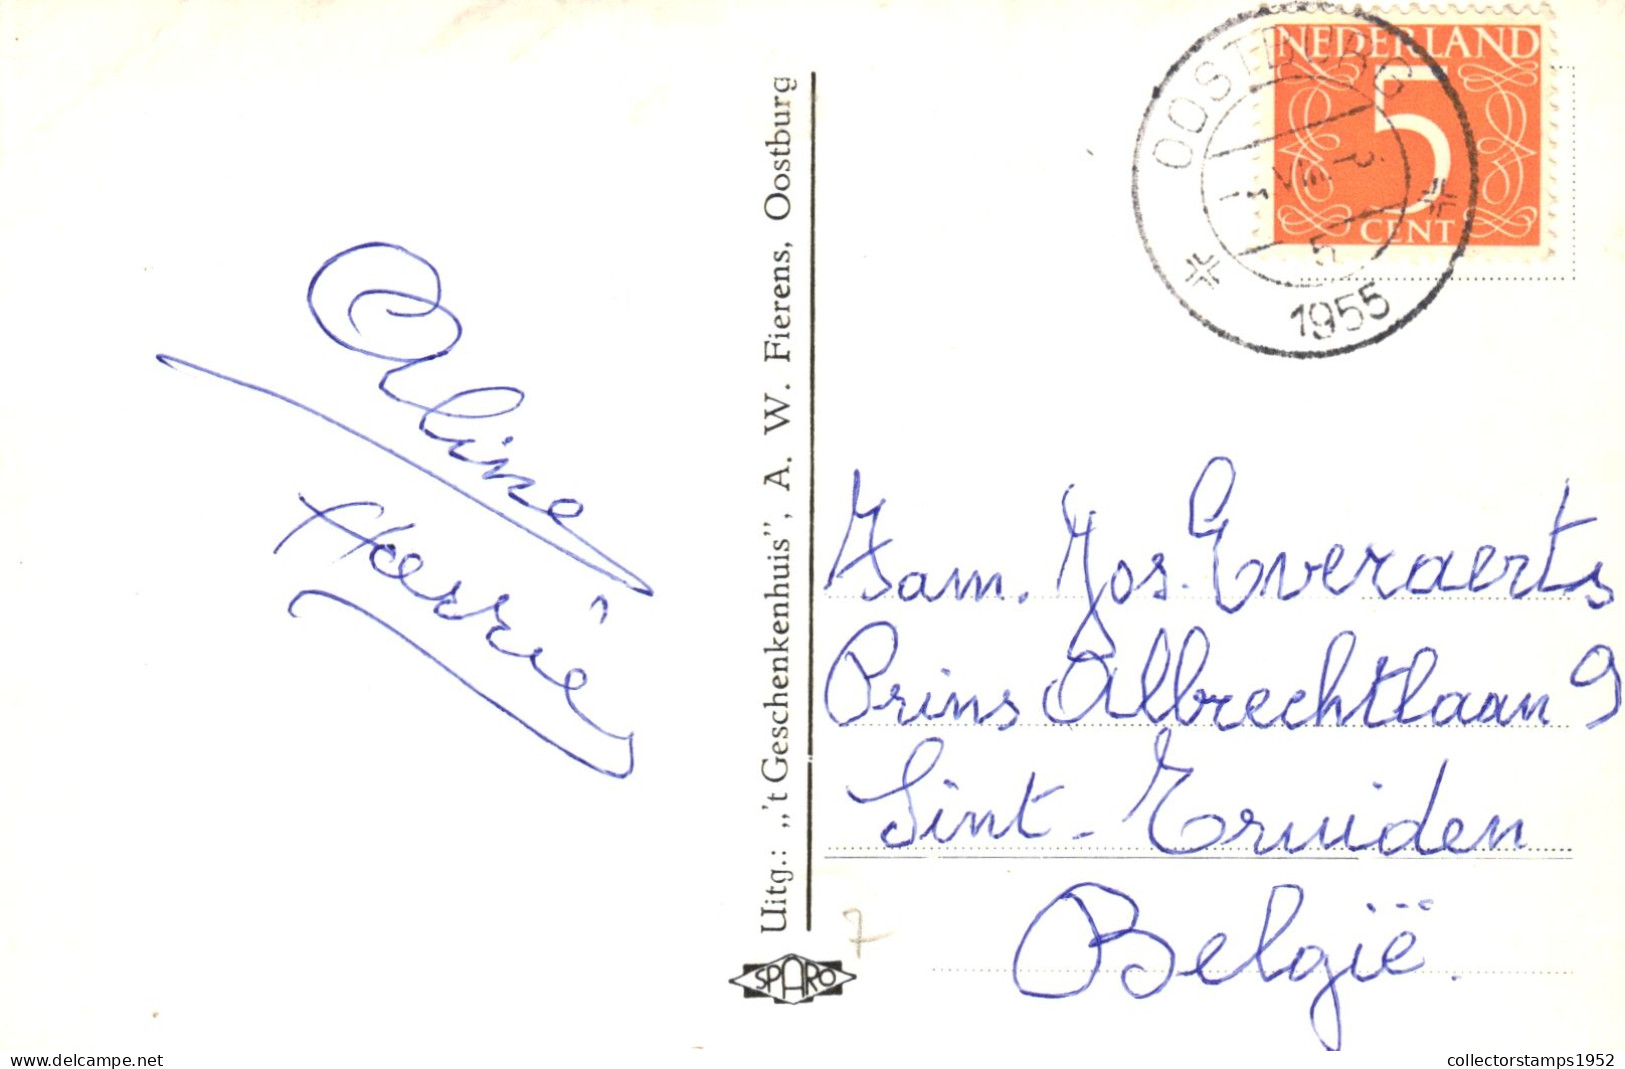 Aline
Harrie
Uitg.: „'t Geschenkenhuis”, A. W. Fierens, Oostburg
SPARO
OOSTBURG
1955
NEDERLAND
5
CENT
Fam. Jos. Everaerts
Prins Albrechtlaan 9
Sint-Truiden
België.
7
www.delcampe.net
collectorstamps1952